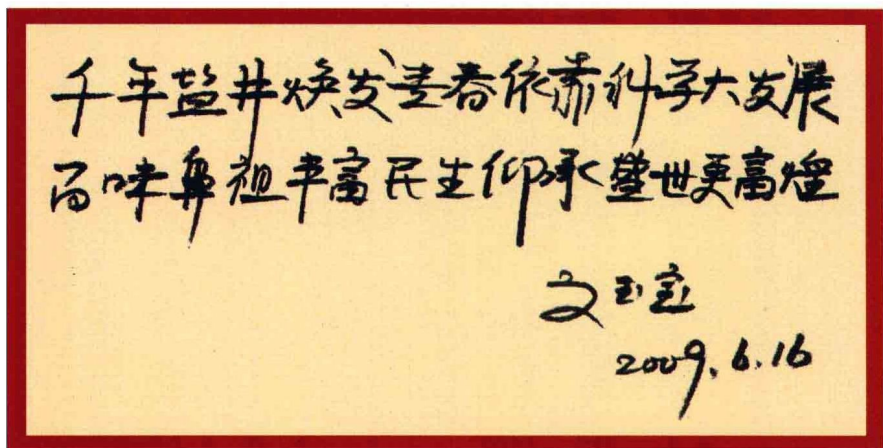 千年盐井焕发青春依靠科学大发展
百味鼻祖丰富民生仰承盛世更富煌
文玉宝
2009.6.16